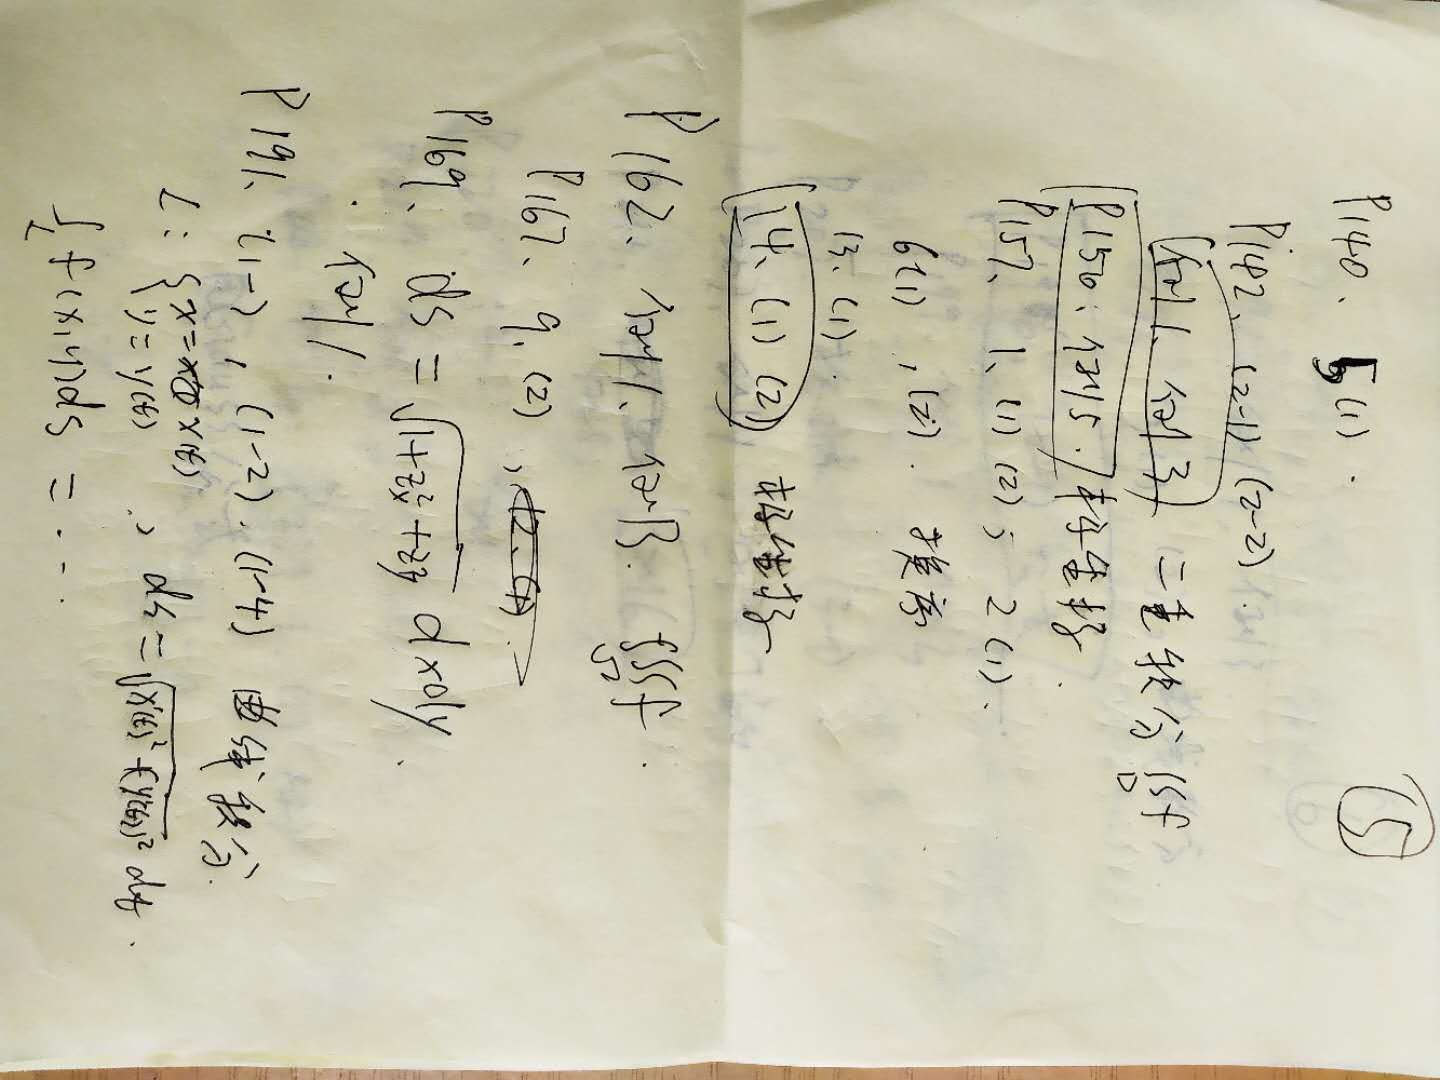 15
P140. 5(1).
P142. (2-1), (2-2)
例1、例3 二重积分 ∬f D
P156: 例5. 极坐标.
P157. 1. (1) (2) ; 2 (1).
6(1), (2). 换序
13. (1).
14. (1) (2) 极坐标
P162. 例1. 例3. ∭f Ω.
P167. 9. (2)
P169. dS = √(1+Zx²+Zy²) dxdy.
例1.
P191. 7.1-2, (1-2). (1-4) 曲线积分.
L: { x = x(t) y = y(t) , ds = √(x'(t)²+(y'(t))²) dt.
∫L f(x,y)ds = ....